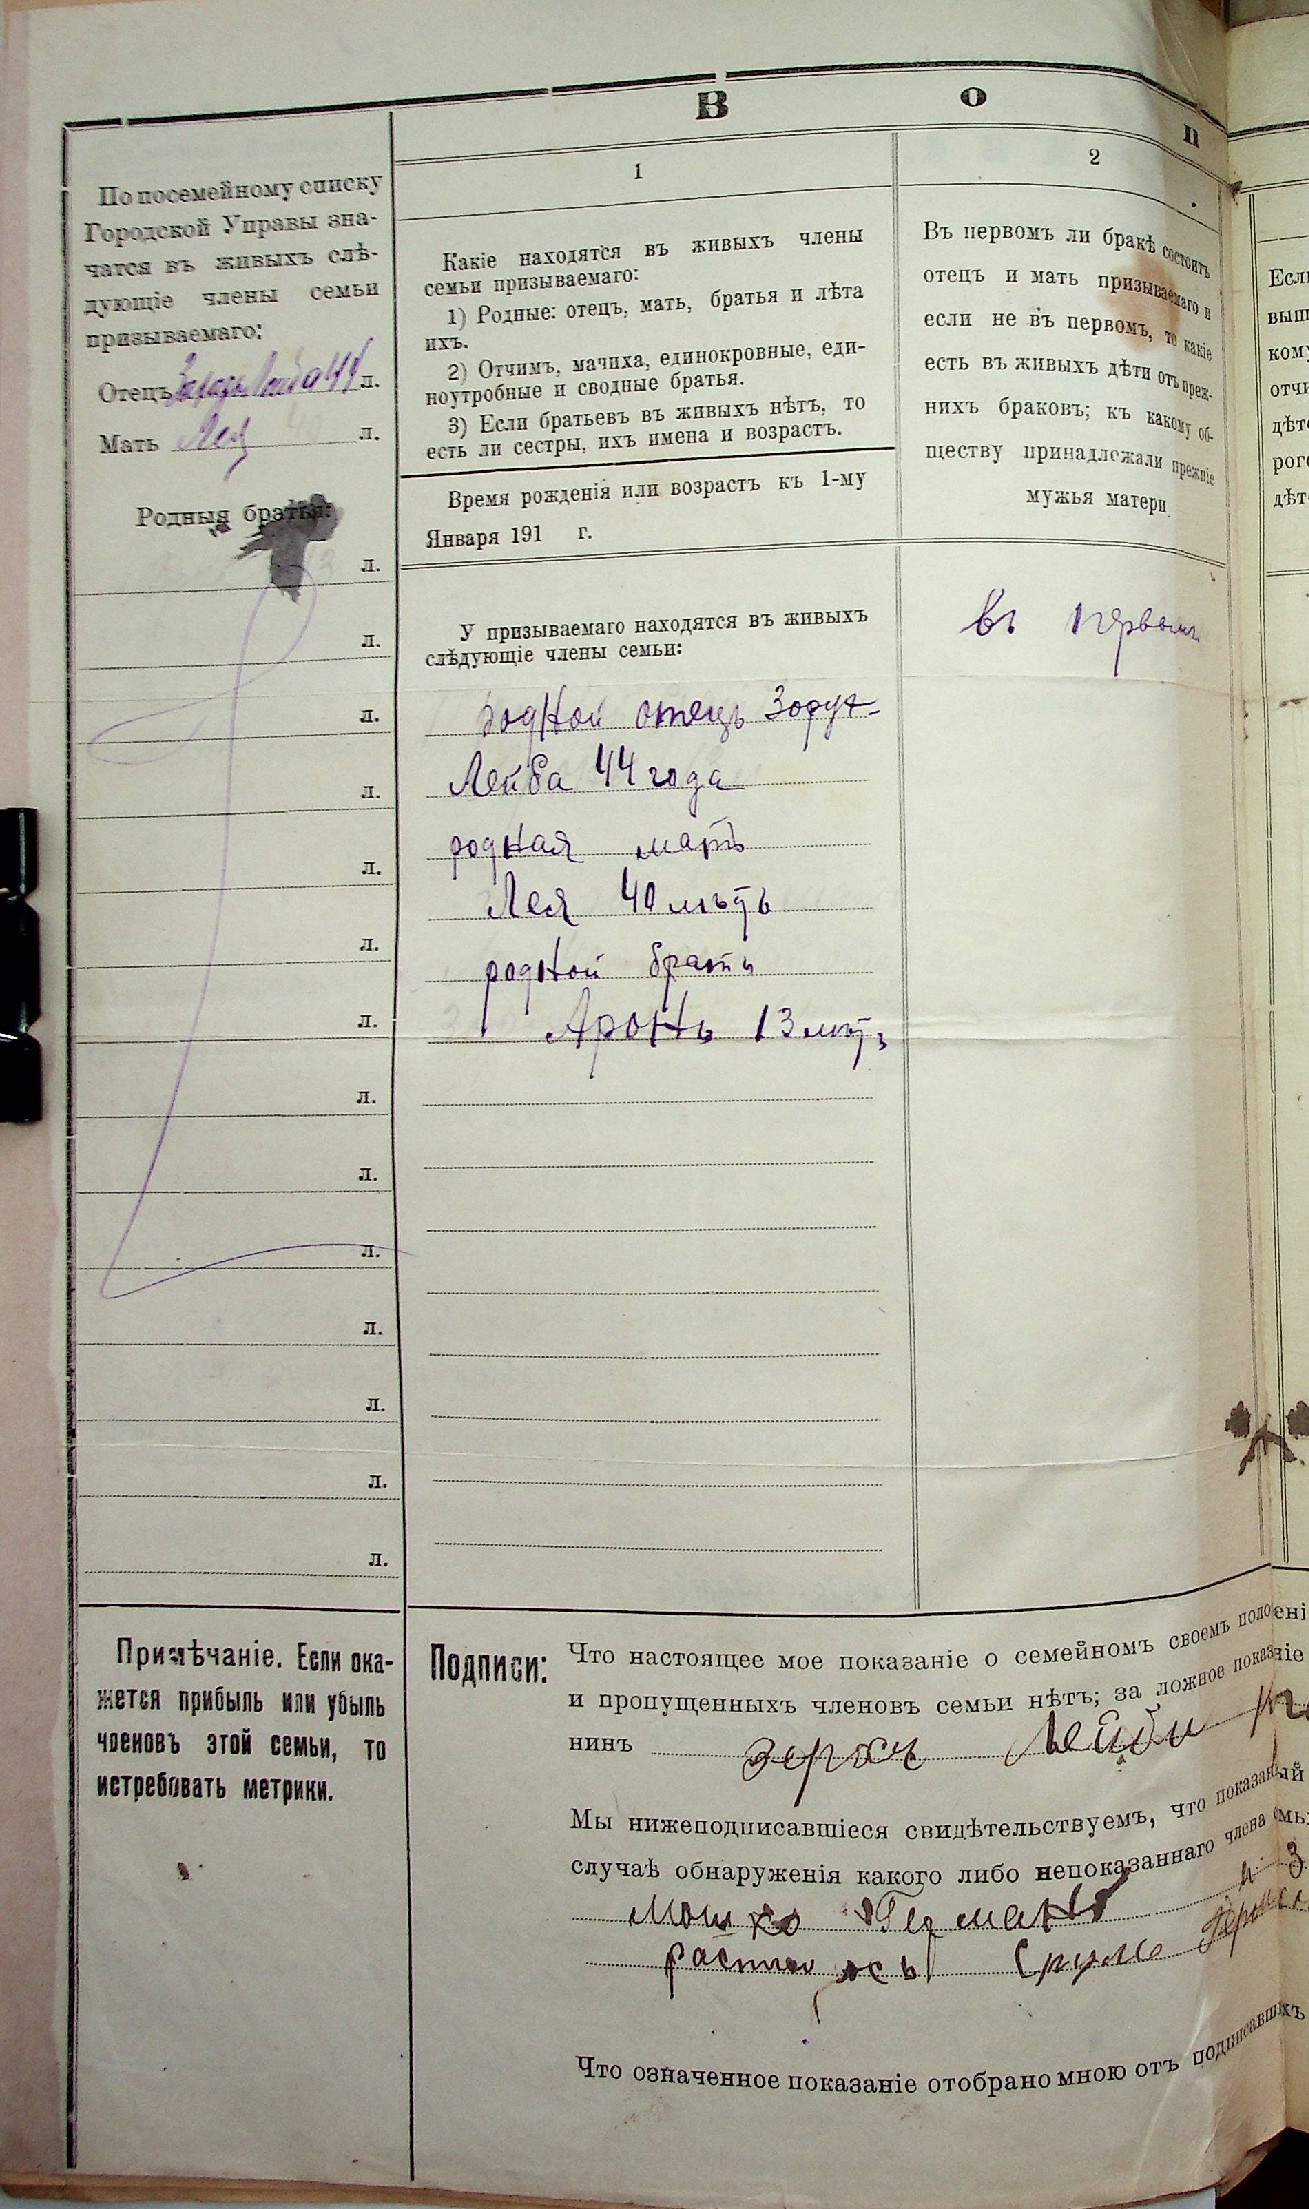 В о п
По посемейному списку
Городской Управы зна-
чатся въ живыхъ слѣ-
дующіе члены семьи
призываемаго:
Отецъ Лейба 44 л.
Мать Лея 40 л.
Родныя братья:
13 л.
л.
л.
л.
л.
л.
л.
л.
л.
л.
л.
л.
л.
л.
Примѣчаніе. Если ока-
жется прибыль или убыль
членовъ этой семьи, то
истребовать метрики.
1
Какіе находятся въ живыхъ члены
семьи призываемаго:
1) Родные: отецъ, мать, братья и лѣта
ихъ.
2) Отчимъ, мачиха, единокровные, еди-
ноутробные и сводные братья.
3) Если братьевъ въ живыхъ нѣтъ, то
есть ли сестры, ихъ имена и возрастъ.
Время рожденія или возрастъ къ 1-му
Января 191 г.
У призываемаго находятся въ живыхъ
слѣдующіе члены семьи:
родной отецъ
Лейба 44 года
родная мать
Лея 40 лѣтъ
родной братъ
Аронъ 13 лѣтъ
2
Въ первомъ ли бракѣ состоятъ
отецъ и мать призываемаго и
если не въ первомъ, то какіе
есть въ живыхъ дѣти отъ преж-
нихъ браковъ; къ какому об-
ществу принадлежали прежніе
мужья матери.
въ первомъ
Если
выш
кому
отчи
дѣт
рого
дѣт
Подписи:
Что настоящее мое показаніе о семейномъ своемъ положені
и пропущенныхъ членовъ семьи нѣтъ; за ложное показаніе
нинъ Лейби
Мы нижеподписавшіеся свидѣтельствуемъ, что показанный
случаѣ обнаруженія какого либо непоказаннаго члена семьи
Мошко Германъ
Сруль
Что означенное показаніе отобрано мною отъ подписавшихъ